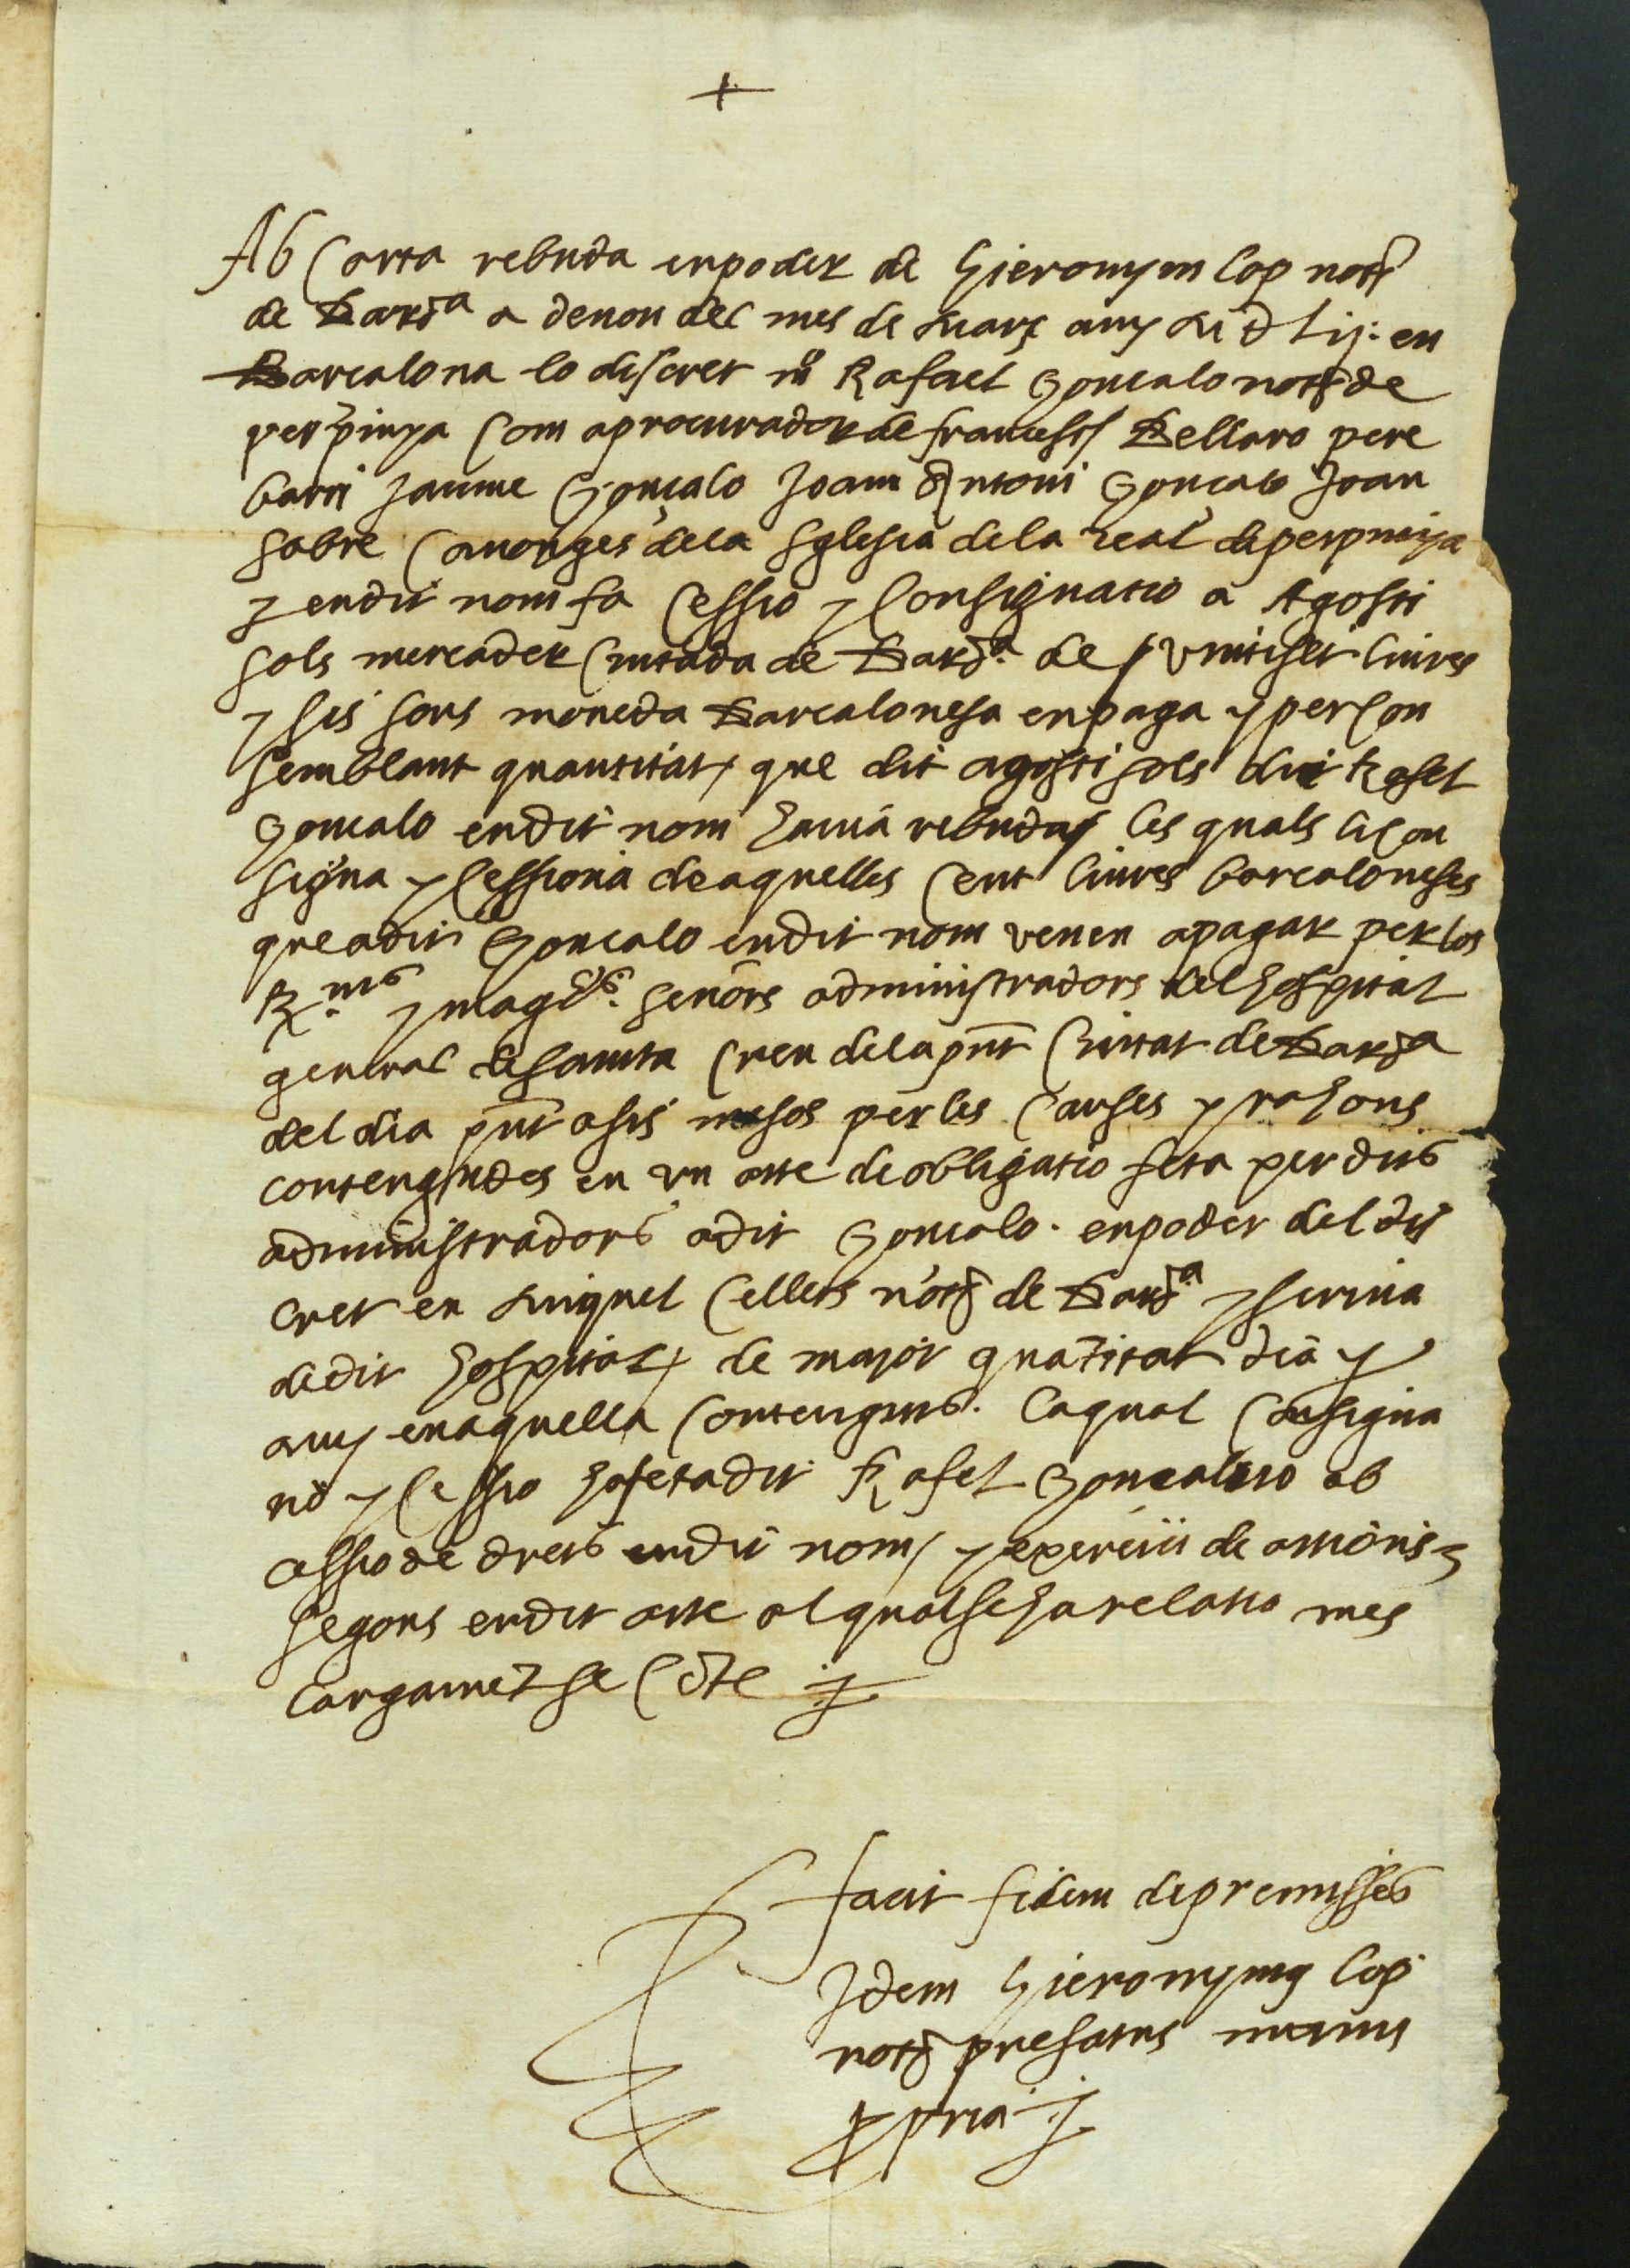 +
Ab Carta rebuda enpoder de Hieronym Cop notͬ
de Barᵃ a denou del mes de Mars any MDLij. en
Barcalona lo discret mº Rafael Goncalo notͬ de
perpinya Com aprocurador de francesh Bellaro pere
barri Jaume Gonçalo Joam Antoni Gonçalo Joan
fabre Canonges dela Sglesia dela real deperpinya
y endit nom fa Cessio y Consignatio a Agosti
sols mercader Ciutada de Barᵃ. de vintiset liures
y sis sous moneda Barcalonesa enpaga y per Con
semblant quantitat, que dit agosti sols dit Rafel
Goncalo endit nom havia rebudas les quals li Con
signa y Cessiona deaquelles Cent liures barcaloneses
queadit Goncalo endit nom venen apagar per los
R.ᵐˢ y magᶜˢ. senōrs administradors del hospital
general desancta Creu dela pn̄t Ciutat de Barᵃ
del dia pn̄t asis mesos per les Causes y rahons
contengudes en vn acte deobligatio feta per dits
administradors adit Goncalo. enpoder del dis
cret en Miquel Cellers notͬ de Barᵃ y scriua
dedit hospital, de maior quātitat dia y
any enaquella Contenguts. Laqual Consigna
tiō y Cessio ha feta dit Rafel Goncalvo ab
cessio de drets endit nom, y exercici de actions
segons endit acte al qual se ha relatio mes
largamēt se Cōte
facit fidem depremisses
Idem Hieronymus Cop
notͬ prefatus manu
ppria